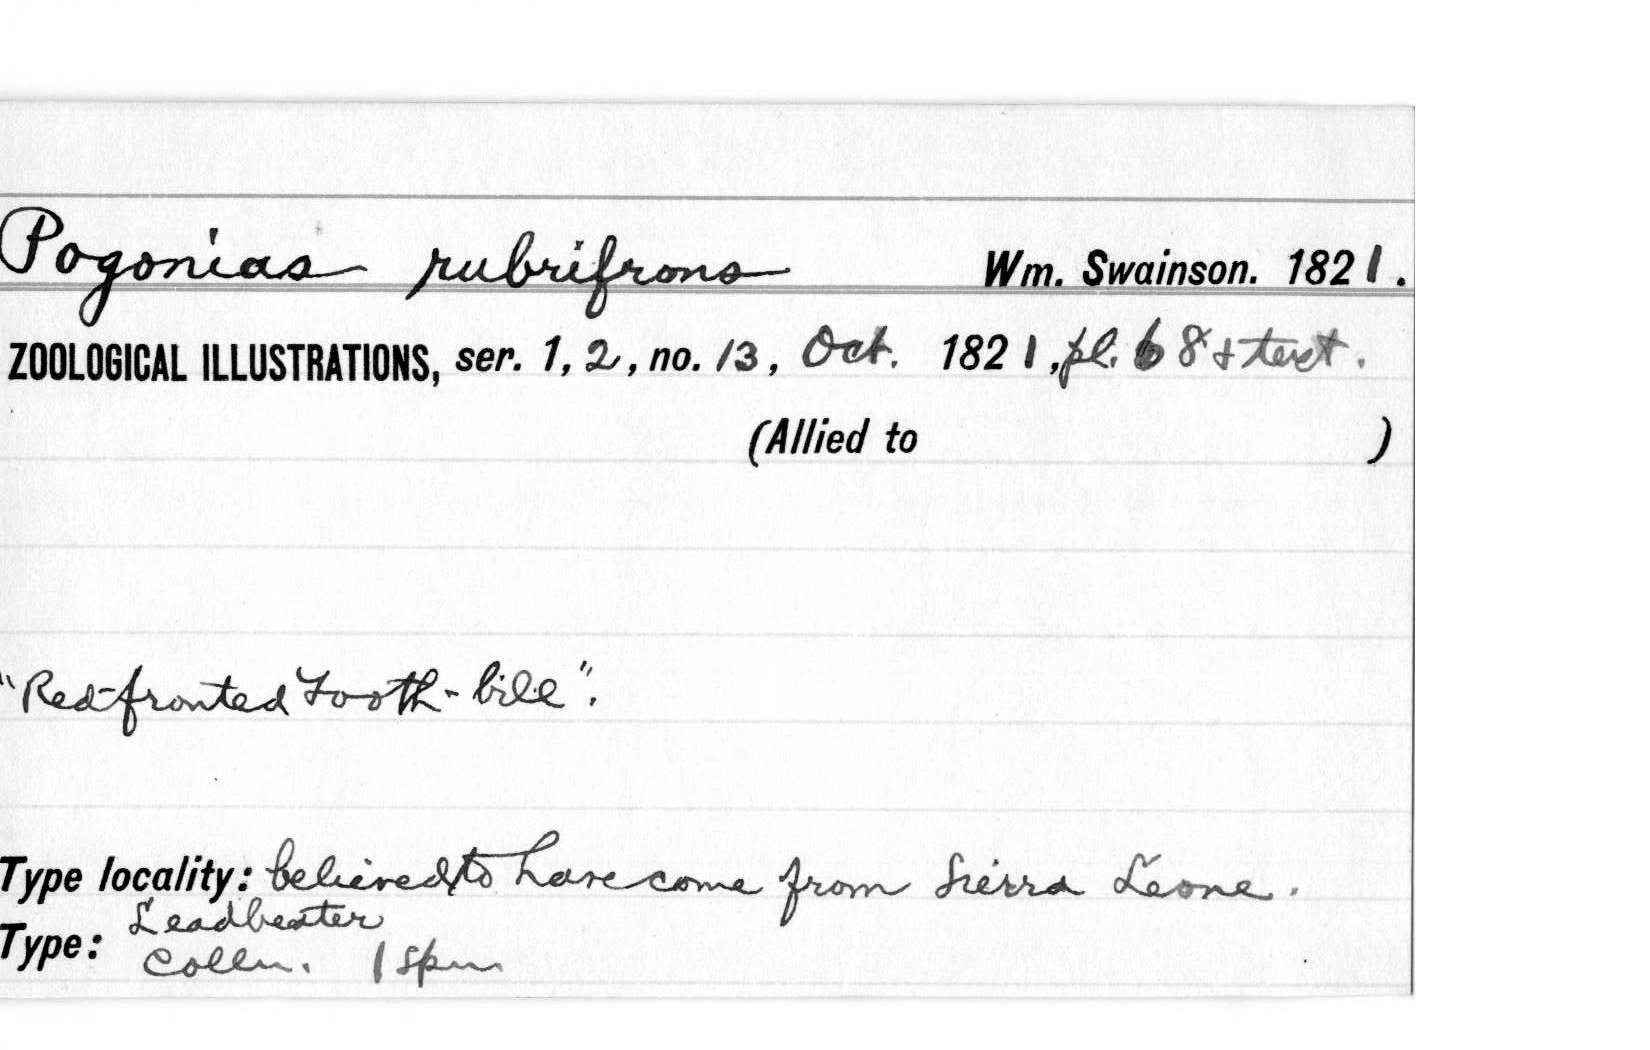 Pogonias rubrifrons Wm. Swainson. 1821.
ZOOLOGICAL ILLUSTRATIONS, ser. 1, 2, no. 13, Oct. 1821, pl. 68 & text.
(Allied to )
"Red-fronted Tooth-bill".
Type locality: believed to have come from Sierra Leone.
Leadbeater
Type: Colln. 1 spm